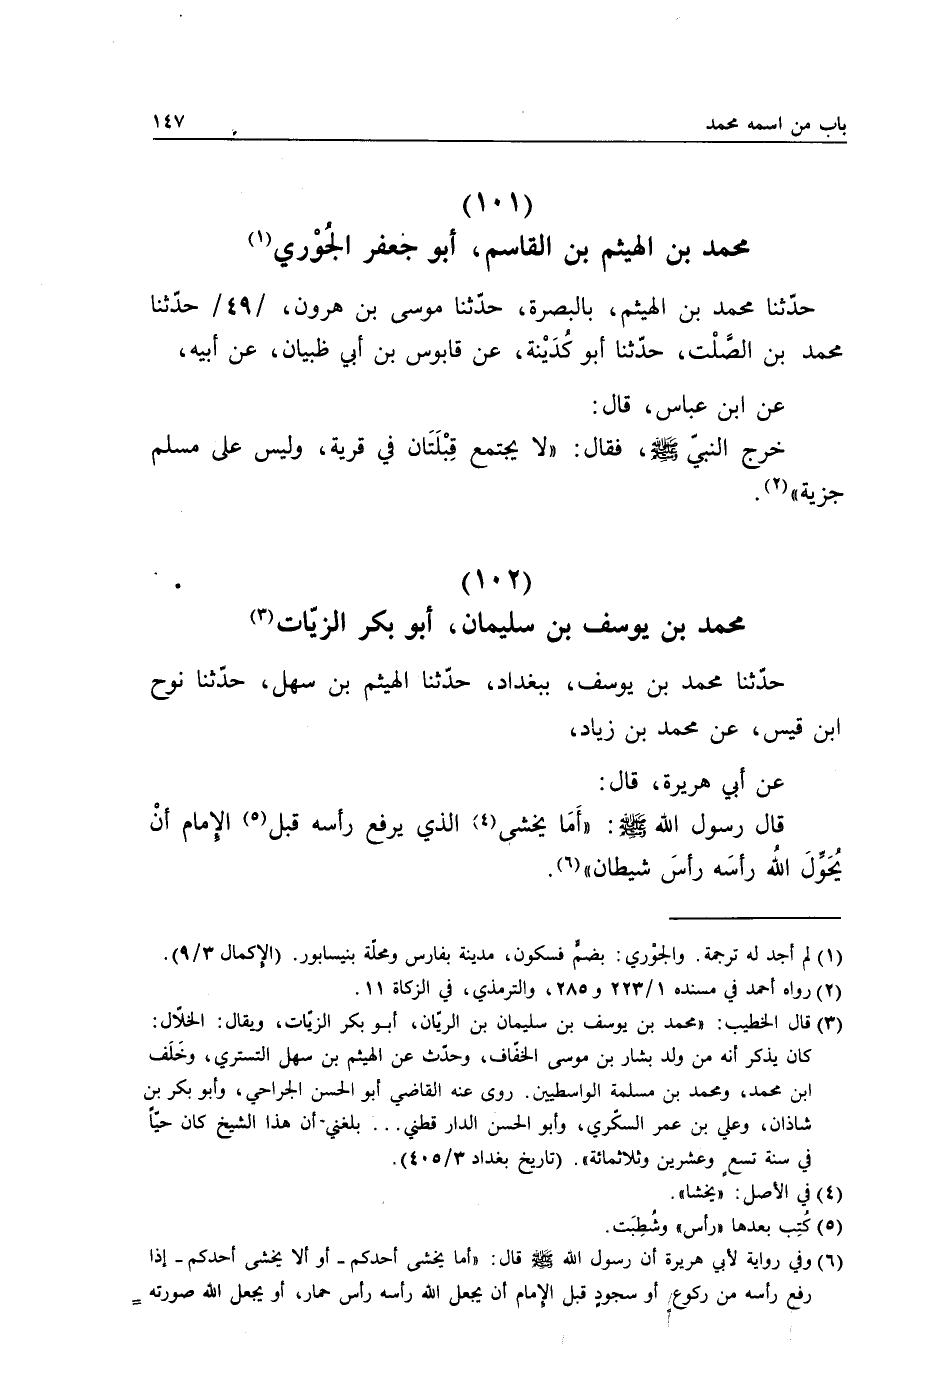 باب من اسمه محمد ١٤٧
(١٠١)
محمد بن الهيثم بن القاسم، أبو جعفر الجُوْري(١)
حدّثنا محمد بن الهيثم، بالبصرة، حدّثنا موسى بن هرون، /٤٩/ حدّثنا
محمد بن الصَّلْت، حدّثنا أبو كُدَيْنة، عن قابوس بن أبي ظبيان، عن أبيه،
عن ابن عباس، قال:
خرج النبيّ ﷺ، فقال: «لا يجتمع قِبْلَتَان في قرية، وليس على مسلم
جزية»(٢).
(١٠٢)
محمد بن يوسف بن سليمان، أبو بكر الزيّات(٣)
حدّثنا محمد بن يوسف، ببغداد، حدّثنا الهيثم بن سهل، حدّثنا نوح
ابن قيس، عن محمد بن زياد،
عن أبي هريرة، قال:
قال رسول الله ﷺ: «أَمَا يخشى(٤) الذي يرفع رأسه قبل(٥) الإمام أنْ
يُحَوِّلَ اللهُ رأسَه رأسَ شيطان»(٦).
(١) لم أجد له ترجمة. والجوْري: بضمٍّ فسكون، مدينة بفارس ومحلّة بنيسابور. (الإكمال ٩/٣).
(٢) رواه أحمد في مسنده ٢٢٣/١ و ٢٨٥، والترمذي، في الزكاة ١١.
(٣) قال الخطيب: «محمد بن يوسف بن سليمان بن الريّان، أبو بكر الزيّات، ويقال: الخلّال:
كان يذكر أنه من ولد بشار بن موسى الخفّاف، وحدّث عن الهيثم بن سهل التستري، وخَلَف
ابن محمد، ومحمد بن مسلمة الواسطيين. روى عنه القاضي أبو الحسن الجراحي، وأبو بكر بن
شاذان، وعلي بن عمر السكّري، وأبو الحسن الدار قطني... بلغني أن هذا الشيخ كان حيّاً
في سنة تسعٍ وعشرين وثلاثمائة». (تاريخ بغداد ٤٠٥/٣).
(٤) في الأصل: «يخشا».
(٥) كُتِب بعدها «رأس» وشُطِبَت.
(٦) وفي رواية لأبي هريرة أن رسول الله ﷺ قال: «أما يخشى أحدكم ـ أو ألا يخشى أحدكم ـ إذا
رفع رأسه من ركوعٍ أو سجودٍ قبل الإمام أن يجعل الله رأسه رأس حمار، أو يجعل الله صورته =